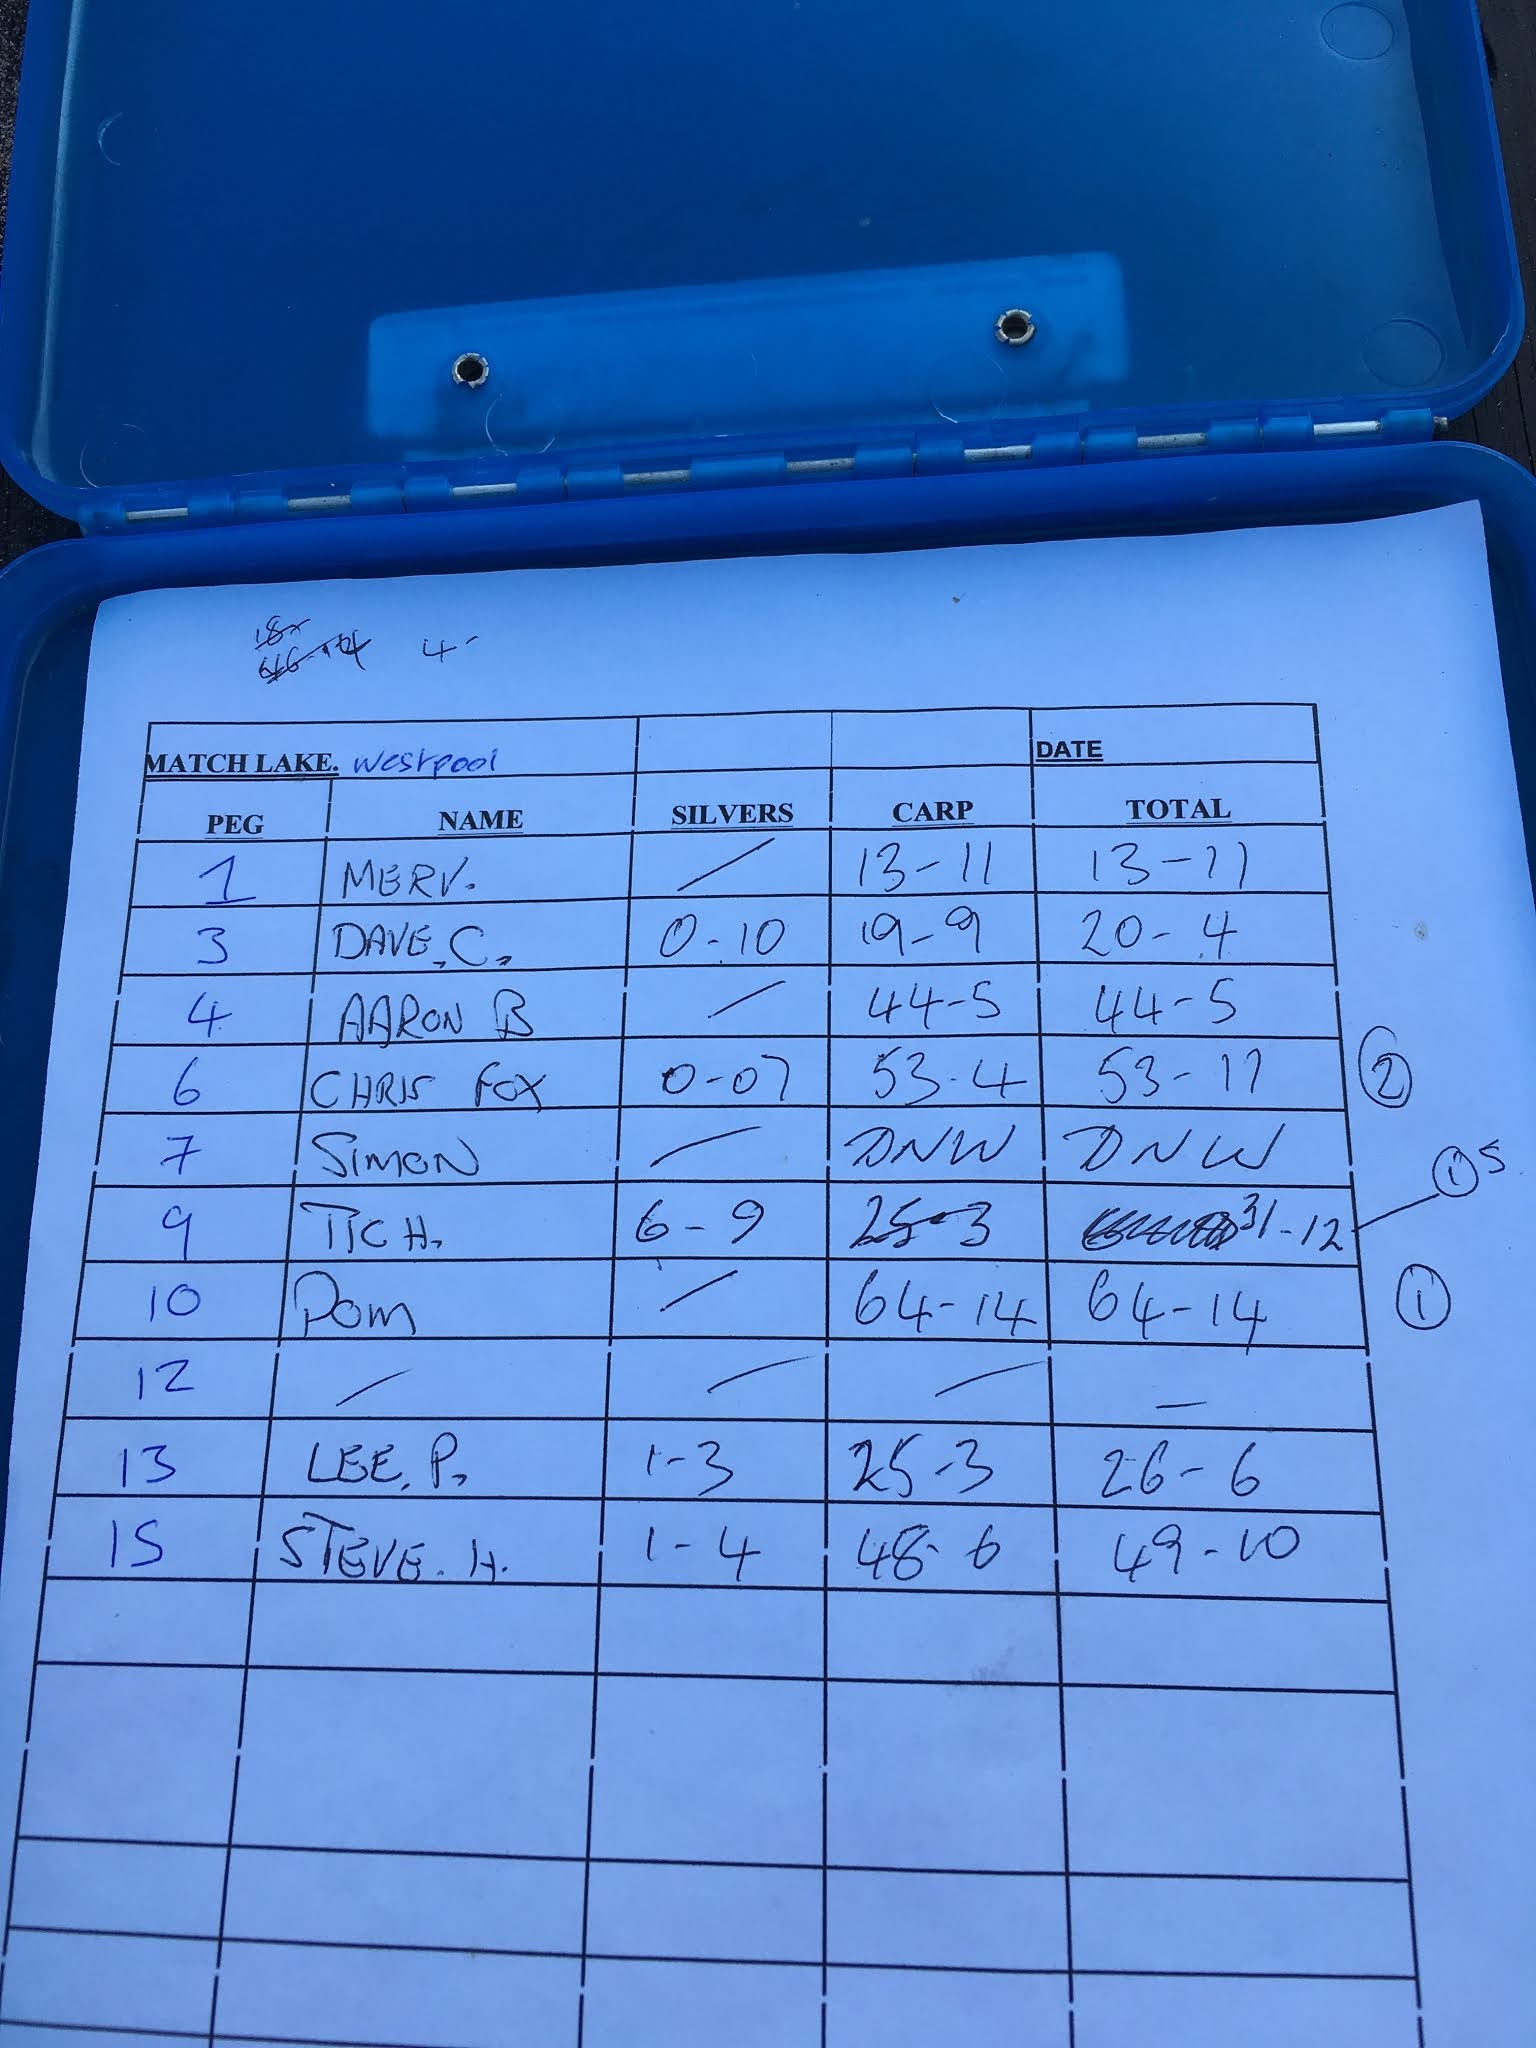 18
46-14 4-
MATCH LAKE. Westpool DATE
PEG NAME SILVERS CARP TOTAL
1 MERV. / 13-11 13-11
3 DAVE.C. 0-10 19-9 20-4
4 AARON B / 44-5 44-5
6 CHRIS FOX 0-07 53-4 53-11 2
7 SIMON / DNW DNW
9 TICH. 6-9 25-3 31-12 1 S
10 Pom / 64-14 64-14 1
12 / / / -
13 LEE.P. 1-3 25-3 26-6
15 STEVE.H. 1-4 48-6 49-10